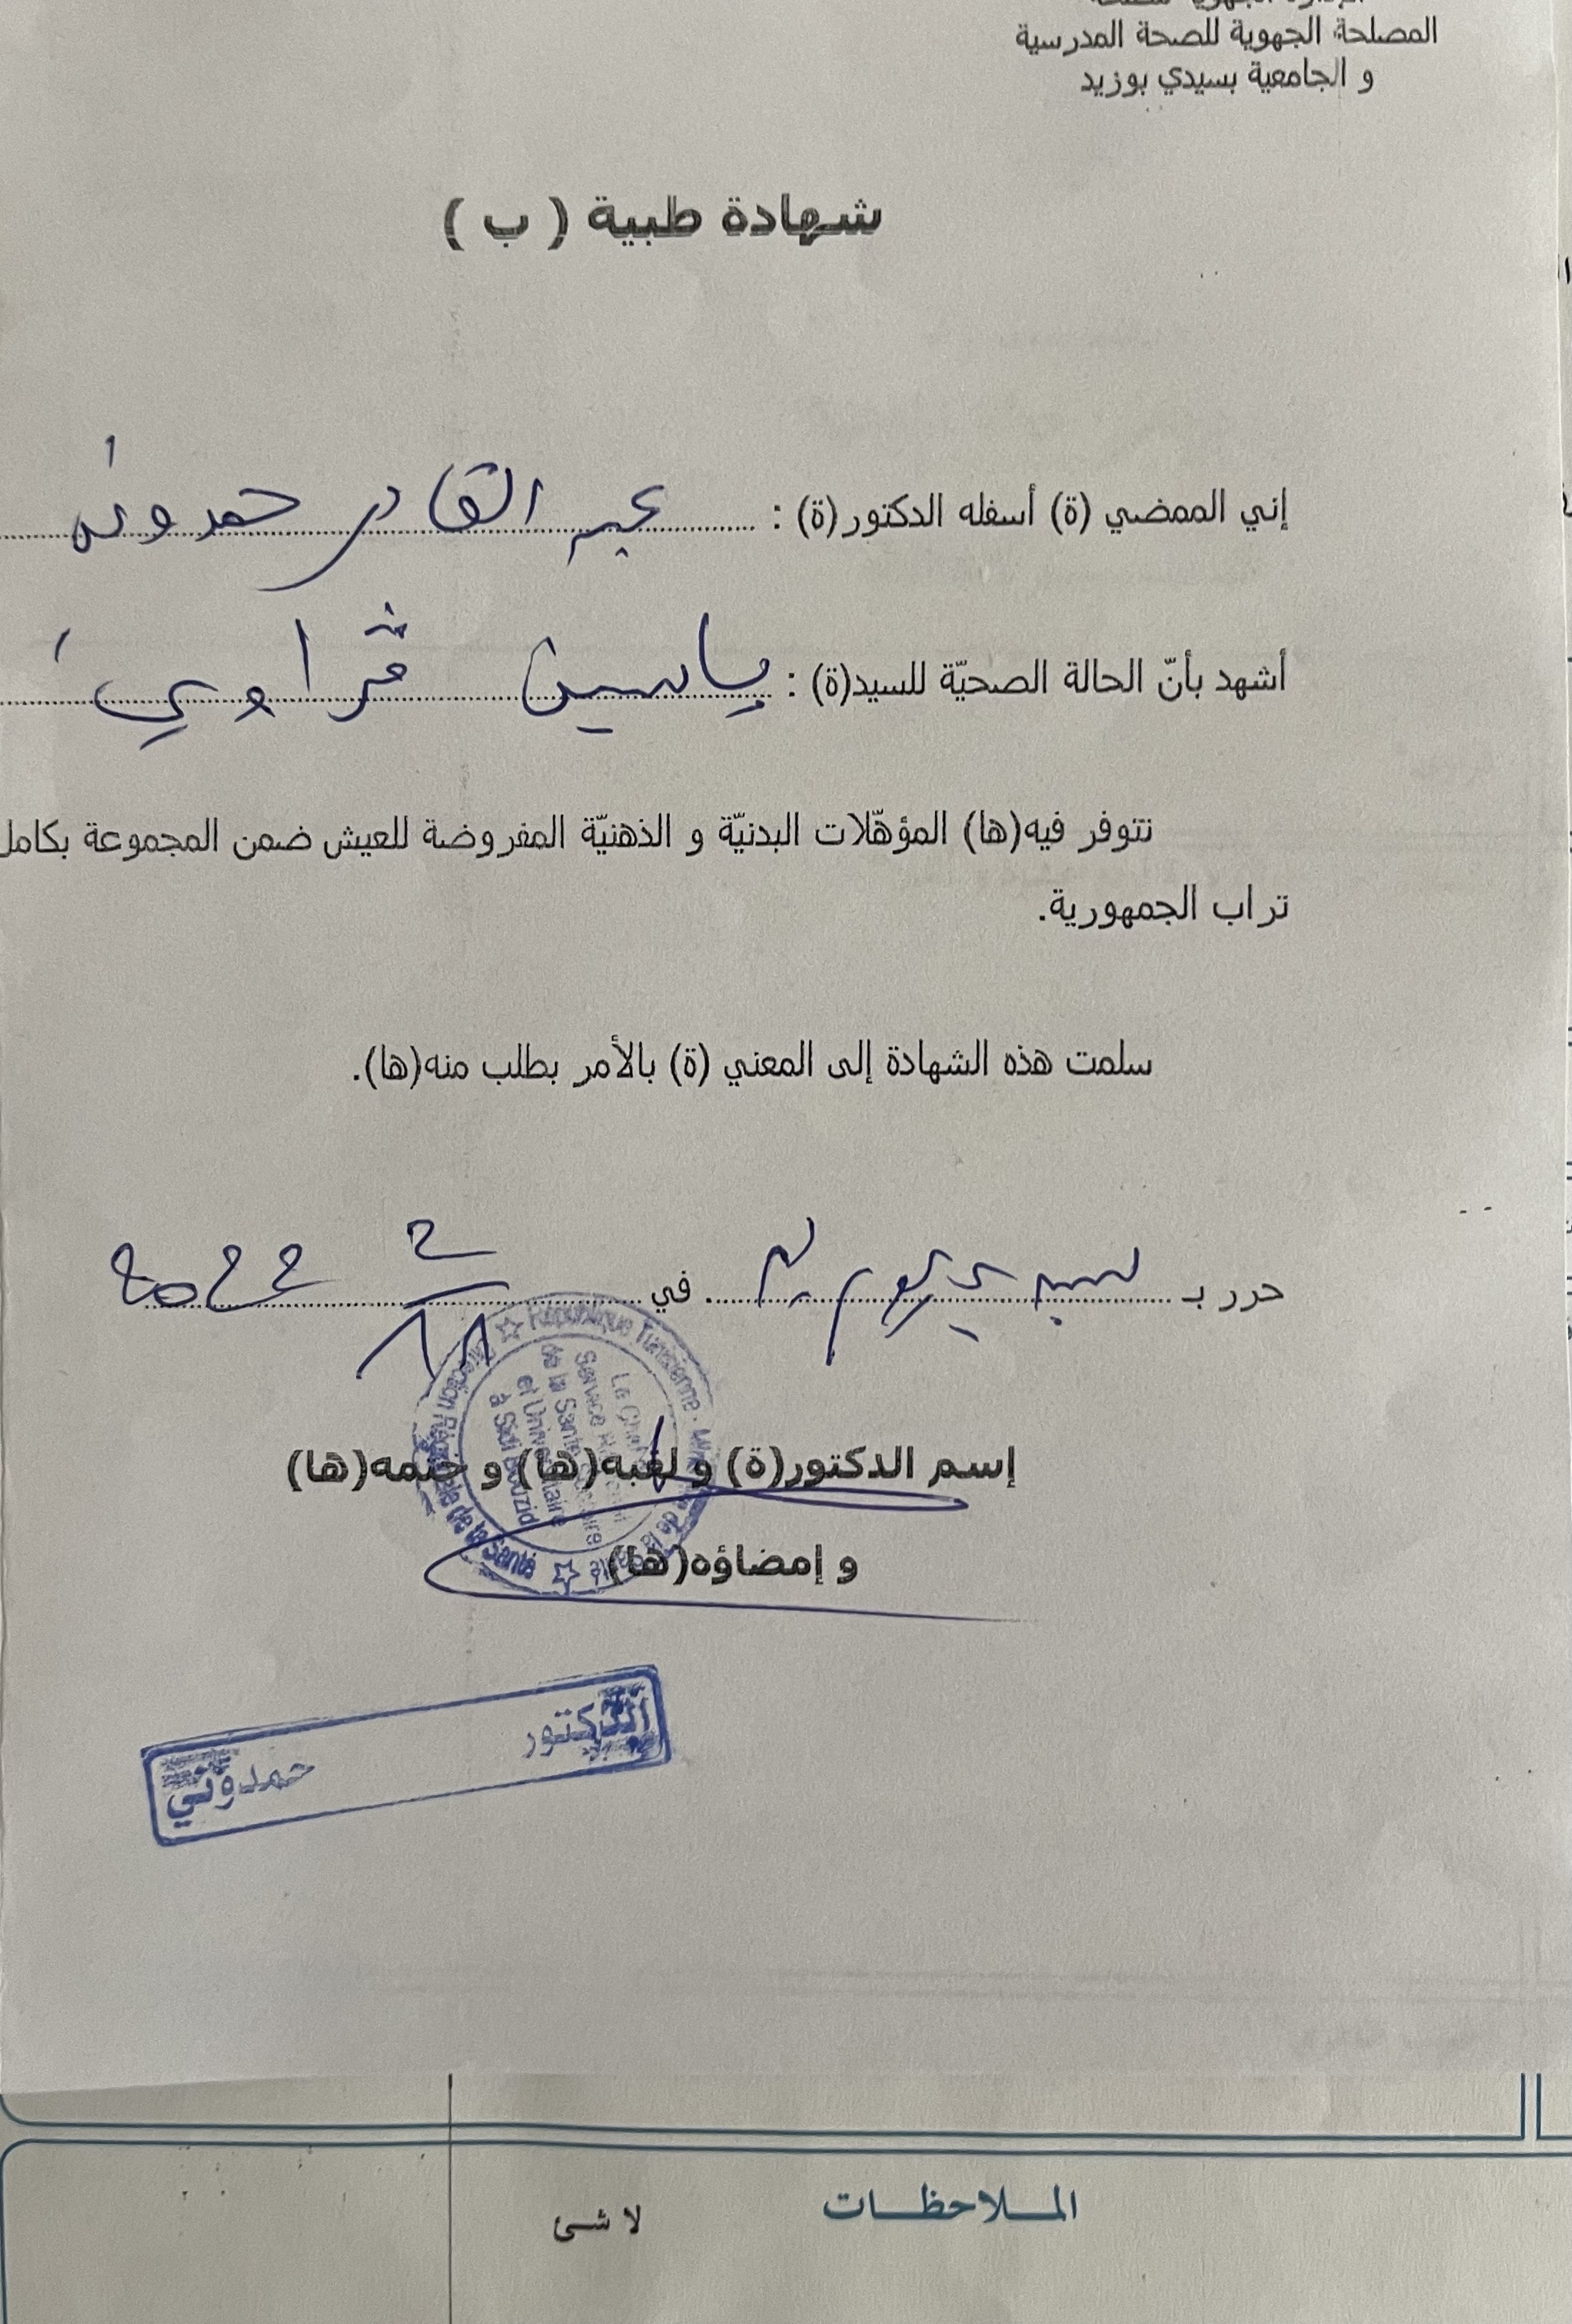 المصلحة الجهوية للصحة المدرسية
و الجامعية بسيدي بوزيد
شهادة طبية ( ب )
إني الممضي (ة) أسفله الدكتور(ة) : عبد القادر حمدوني
أشهد بأنّ الحالة الصحيّة للسيد(ة) : ياسين
تتوفر فيه(ها) المؤهّلات البدنيّة و الذهنيّة المفروضة للعيش ضمن المجموعة بكامل
تراب الجمهورية.
سلمت هذه الشهادة إلى المعني (ة) بالأمر بطلب منه(ها).
حرر بـ سيدي بوزيد في 2/11 2022
إسم الدكتور(ة) و لقبه(ها) و ختمه(ها)
و إمضاؤه(ها)
République Tunisienne
Direction Régionale de la Santé
Service
de la Santé
et Universitaire
à Sidi Bouzid
الدكتور حمدوني
الملاحظات
لا شئ